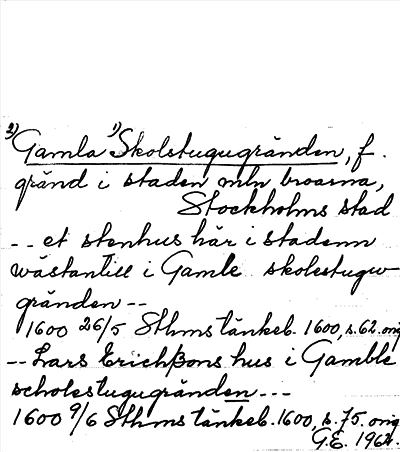 2) Gamla 1) Skolstugugränden, f.
gränd i staden mln broarna,
Stockholms stad
-- et stenhus här i stadenn
wästantill i Gamle skolestuguw-
gränden --
1600 26/5 Sthms tänkeb. 1600, s. 62. orig
-- Lars Erichßons hus i Gamble
scholestugugränden ---
1600 9/6 Sthms tänkeb. 1600, s. 75. orig
G.E. 1962.